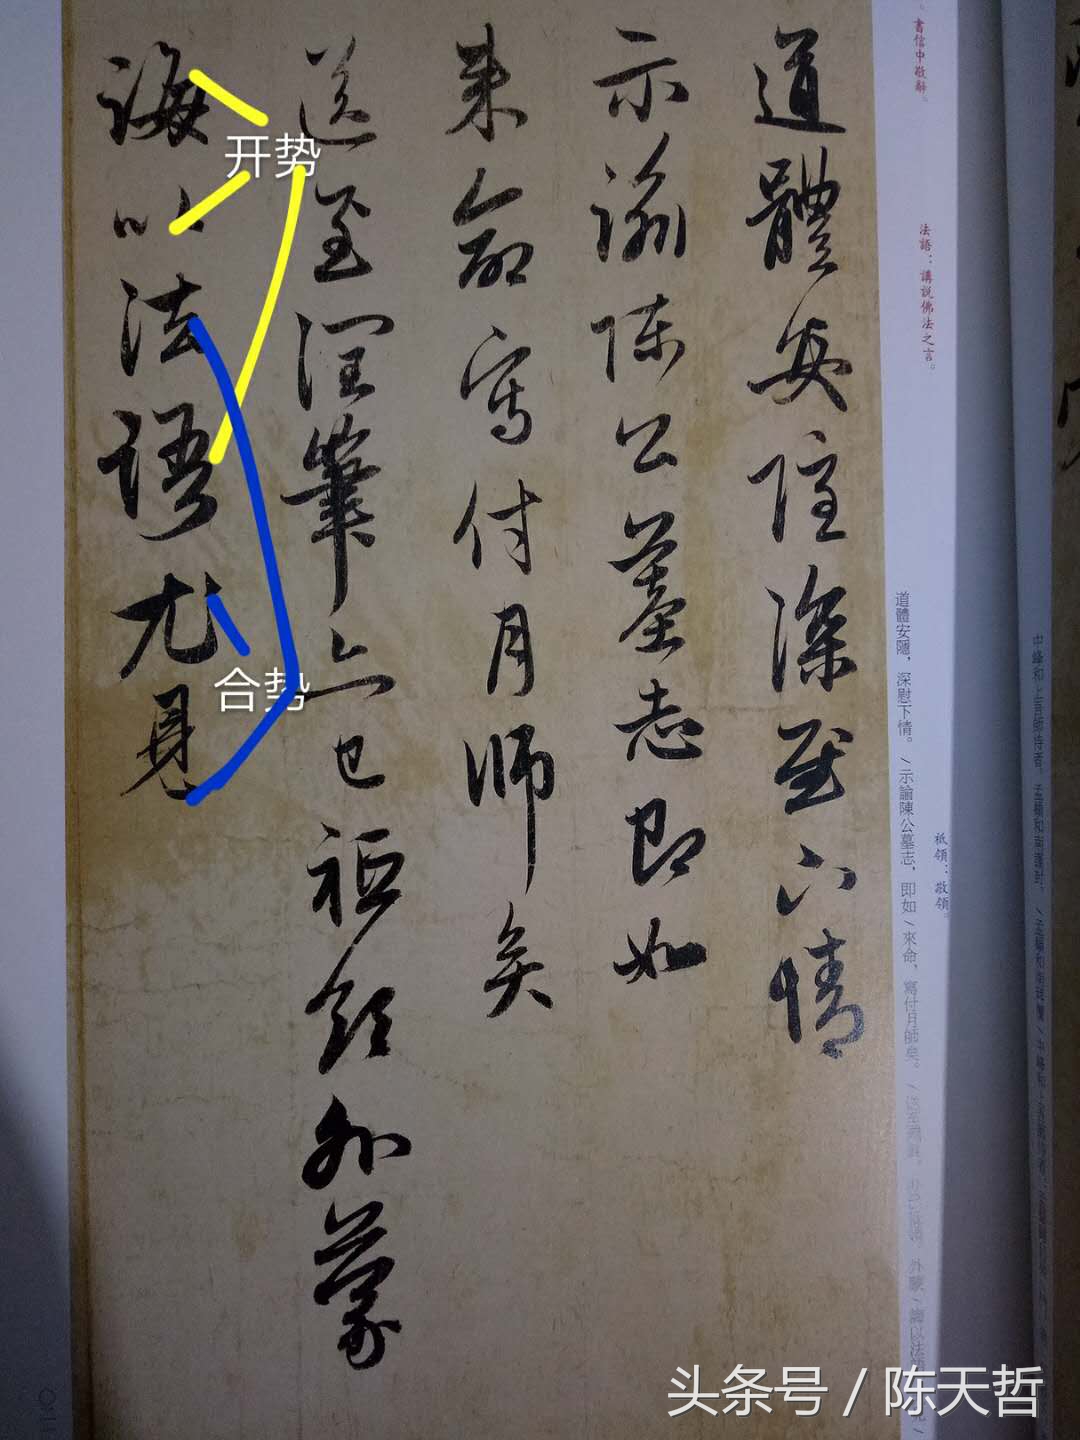 道體安隱深慰下情
示諭陳公墓志即如
來命寫付月師矣
送至潤筆亦已祗領外蒙
誨以法語尤見
开势
合势
書信中敬辭。
法語：講說佛法之言。
祗領：敬領。
道體安隱，深慰下情。/示諭陳公墓志，即如/來命，寫付月師矣。/送至潤筆，
外蒙/誨以法語
头条号 / 陈天哲